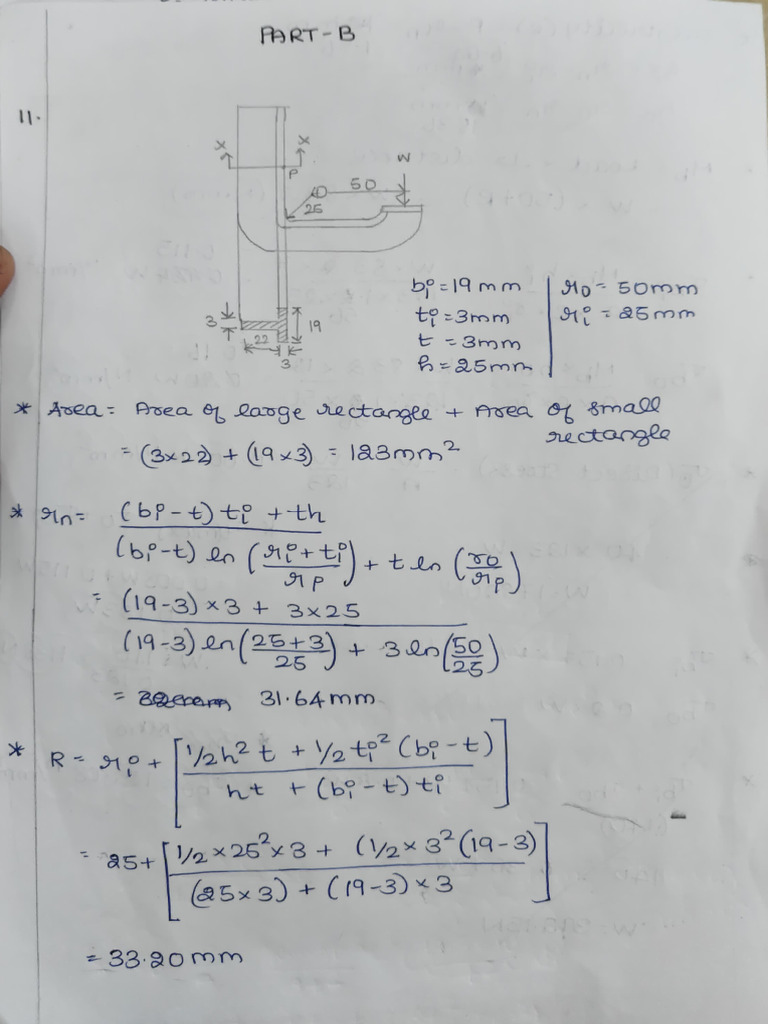 PART-B
11.
X X
P
W
50
25
3 19
22
3
bi = 19 mm | r0 = 50mm
ti = 3mm | ri = 25mm
t = 3mm
h = 25mm
* Area = Area of large rectangle + Area of small
rectangle
= (3×22) + (19×3) = 123mm²
* rn = (bi - t) ti + th
(bi - t) ln (ri + ti / rp) + t ln (ro / rp)
= (19-3) × 3 + 3×25
(19-3) ln (25+3 / 25) + 3 ln (50 / 25)
= 31.64 mm
* R = ri + [1/2 h² t + 1/2 ti² (bi - t)
ht + (bi - t) ti]
= 25 + [1/2 × 25² × 3 + (1/2 × 3² (19-3)
(25 × 3) + (19-3) × 3]
= 33.20 mm